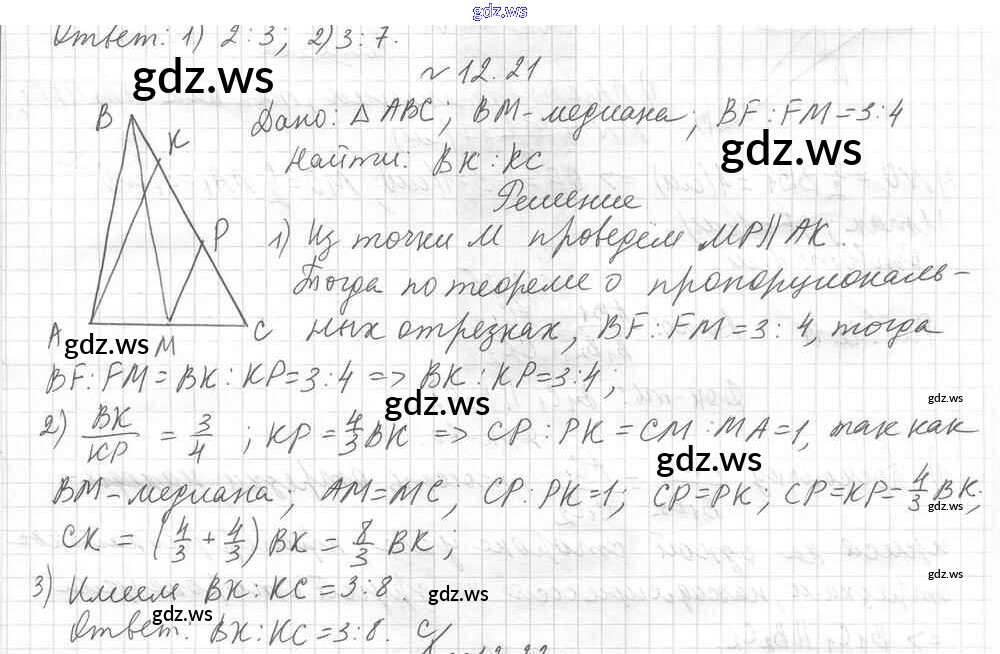 gdz.ws
Ответ: 1) 2:3; 2) 3:7.
gdz.ws
№ 12.21
B
K
P
A
M
C
Дано: △ ABC; BM - медиана; BF : FM = 3:4
gdz.ws
Найти: BK : KC
Решение
1) Из точки M проведём MP || AK.
Тогда по теореме о пропорциональ-
ных отрезках, BF : FM = 3 : 4, тогда
gdz.ws
BF : FM = BK : KP = 3:4 => BK : KP = 3:4;
gdz.ws
gdz.ws
2) BK/KP = 3/4 ; KP = 4/3 BK => CP : PK = CM : MA = 1, так как
gdz.ws
BM - медиана; AM = MC, CP : PK = 1; CP = PK; CP = KP = 4/3 BK;
gdz.ws
CK = (4/3 + 4/3) BK = 8/3 BK;
3) Имеем BK : KC = 3:8.
gdz.ws
gdz.ws
gdz.ws
Ответ: BK : KC = 3:8.